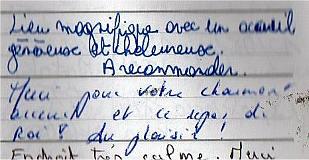 Lieu magnifique avec un accueil
généreuse et chaleureuse.
A recommander.
Merci pour votre charmant
accueil et ce repas di
Roi ! du plaisir !
Endroit très calme. Merci